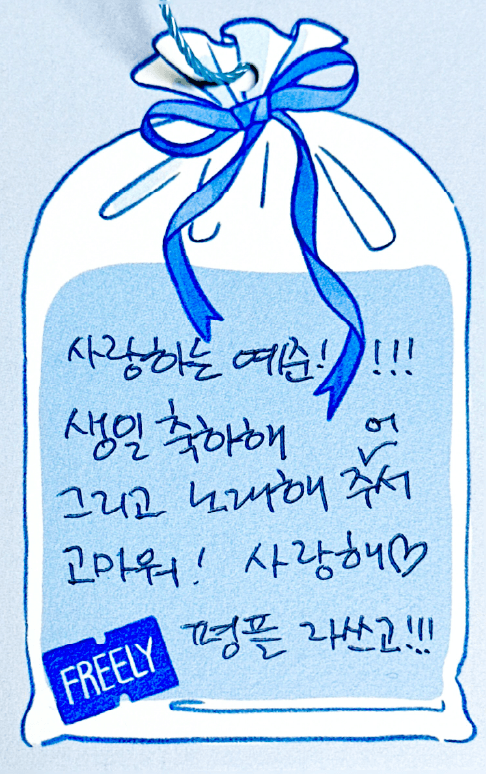 사랑하는 예준! !!!
생일 축하해
어
그리고 노래해 주서
고마워! 사랑해♡
평플 라쓰고!!!
FREELY